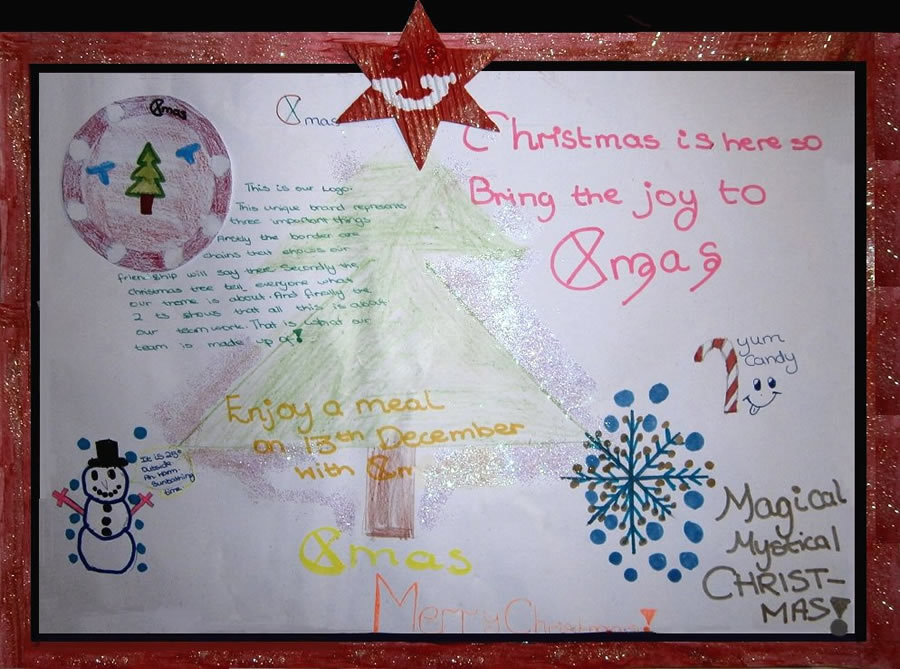 Xmas
Xmas
Christmas is here so
Bring the joy to
Xmas
This is our Logo.
This unique brand represents
three important things
Firstly the border are
chains that shows our
friendship will say there. Secondly the
christmas tree tell everyone what
our theme is about. And finally the
2 ts shows that all this is about
our teamwork. That is what our
team is made up of!
yum
Candy
Enjoy a meal
on 13th December
with Xm
It is 25°
Outside
Ah warm.
Sunbathing
time
Xmas
Magical
Mystical
CHRIST-
MAS!
Merry Christmas!